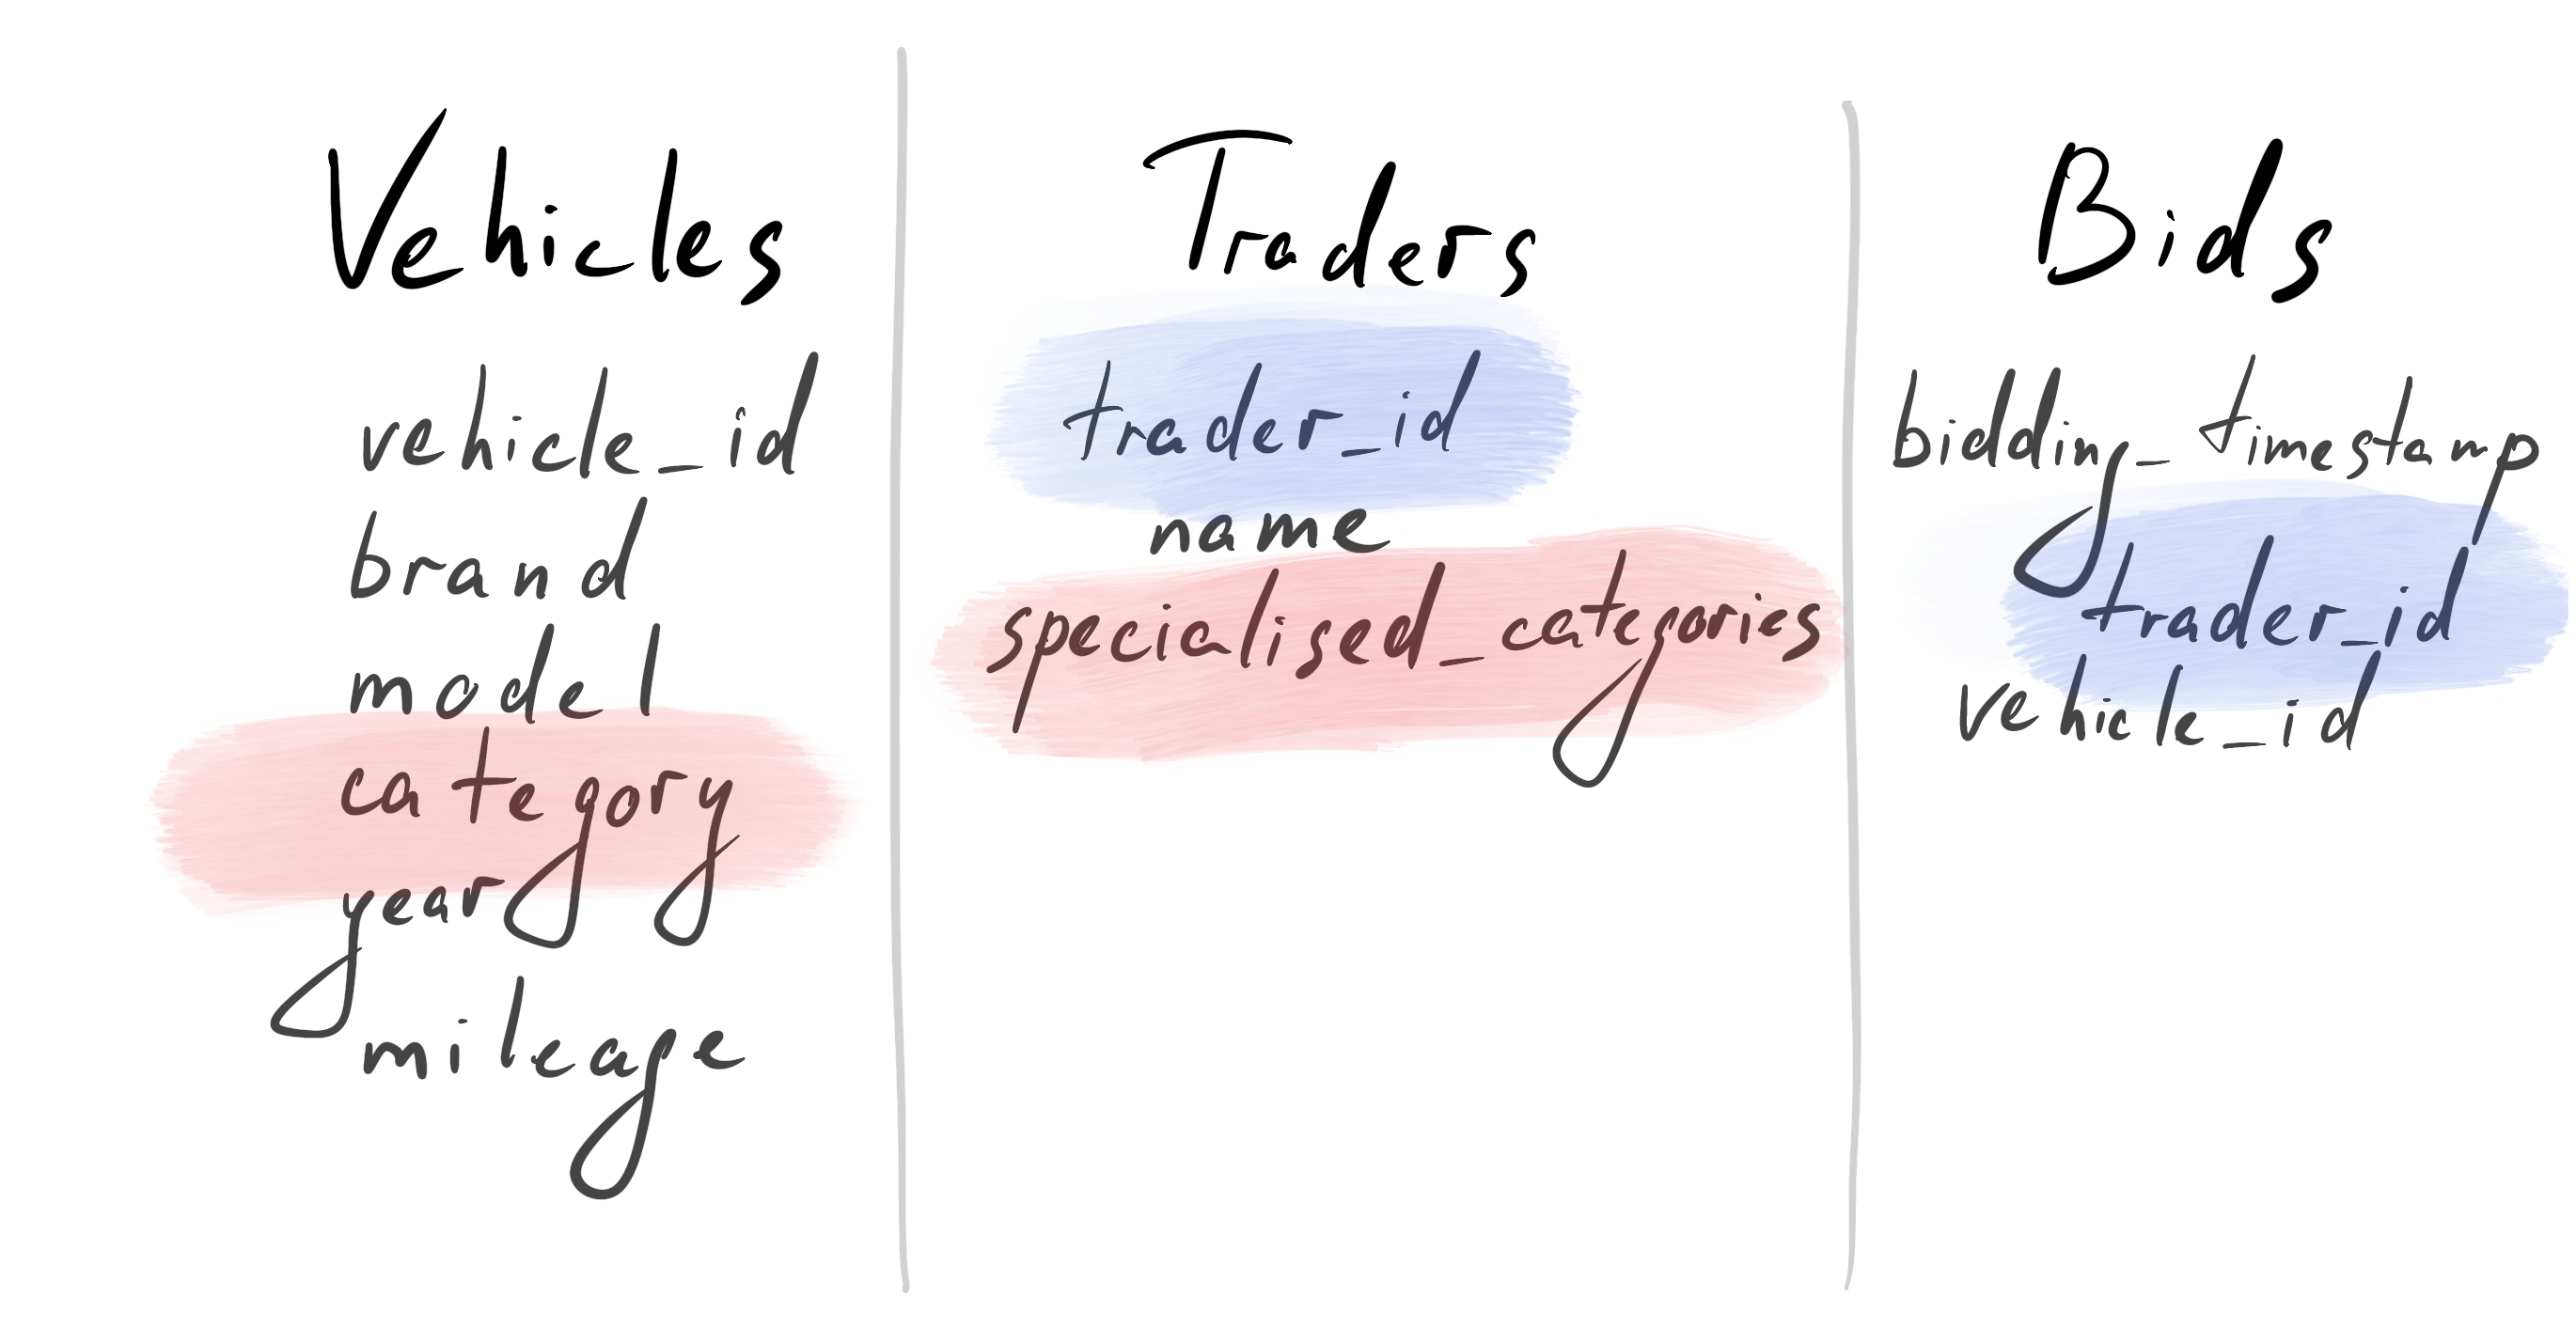 Vehicles
vehicle_id
brand
model
category
year
mileage
Traders
trader_id
name
specialised_categories
Bids
bidding_timestamp
trader_id
vehicle_id